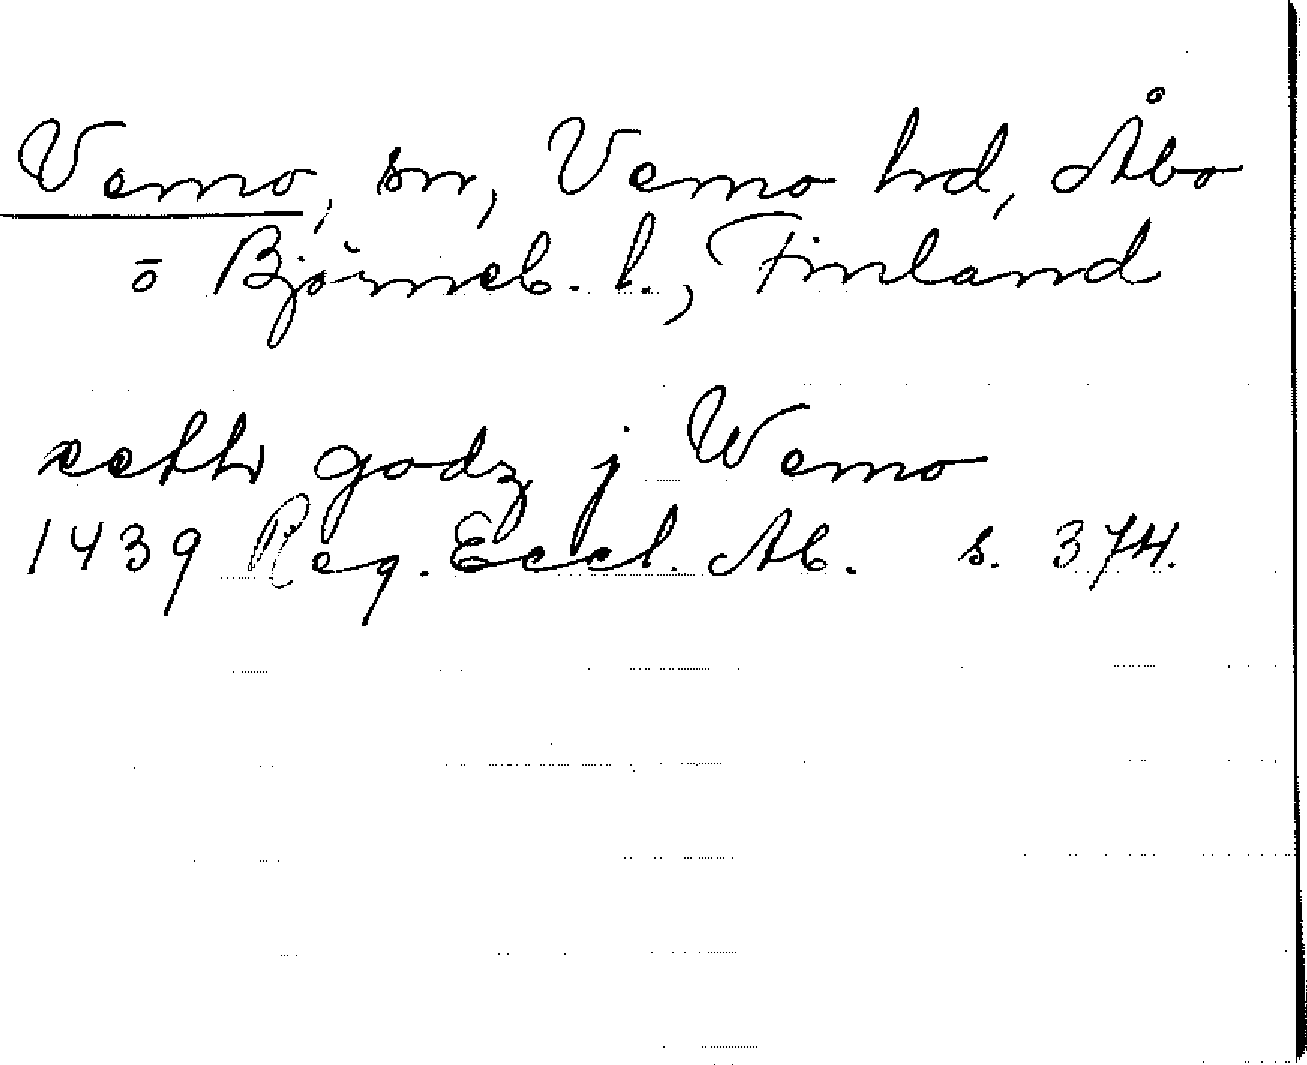 Vemo, sn, Vemo hd, Åbo
o Björneb. l., Finland
eethr godz j Wemo
1439 Reg. Eccl. Ab. s. 374.